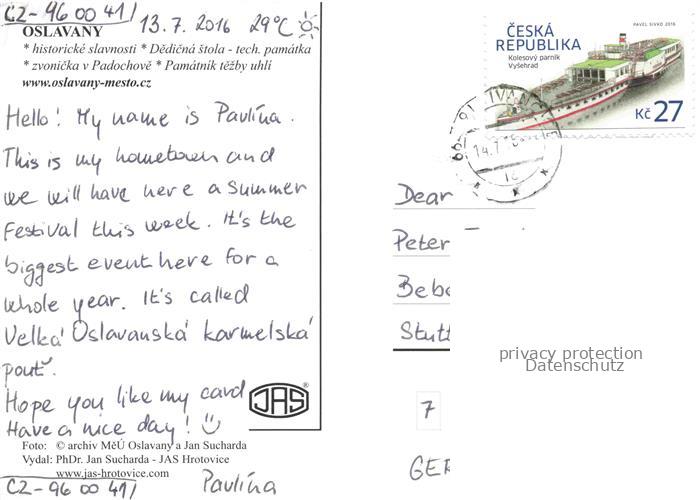 CZ-960041/
13.7.2016 29°C
OSLAVANY
* historické slavnosti * Dědičná štola - tech. památka
* zvonička v Padochově * Památník těžby uhlí
www.oslavany-mesto.cz
Hello! My name is Pavlína.
This is my hometown and
we will have here a summer
Festival this week. It's the
biggest event here for a
whole year. It's called
Velká Oslavanská karmelská
pouť.
Hope you like my card
Have a nice day!
JAS®
Foto: © archiv MěÚ Oslavany a Jan Sucharda
Vydal: PhDr. Jan Sucharda - JAS Hrotovice
www.jas-hrotovice.com
CZ-960041/ Pavlína
PAVEL SIVKO 2016
ČESKÁ
REPUBLIKA
Kolesový parník
Vyšehrad
Kč 27
Dear
Peter
Bebe
Stutt
privacy protection
Datenschutz
7
GER